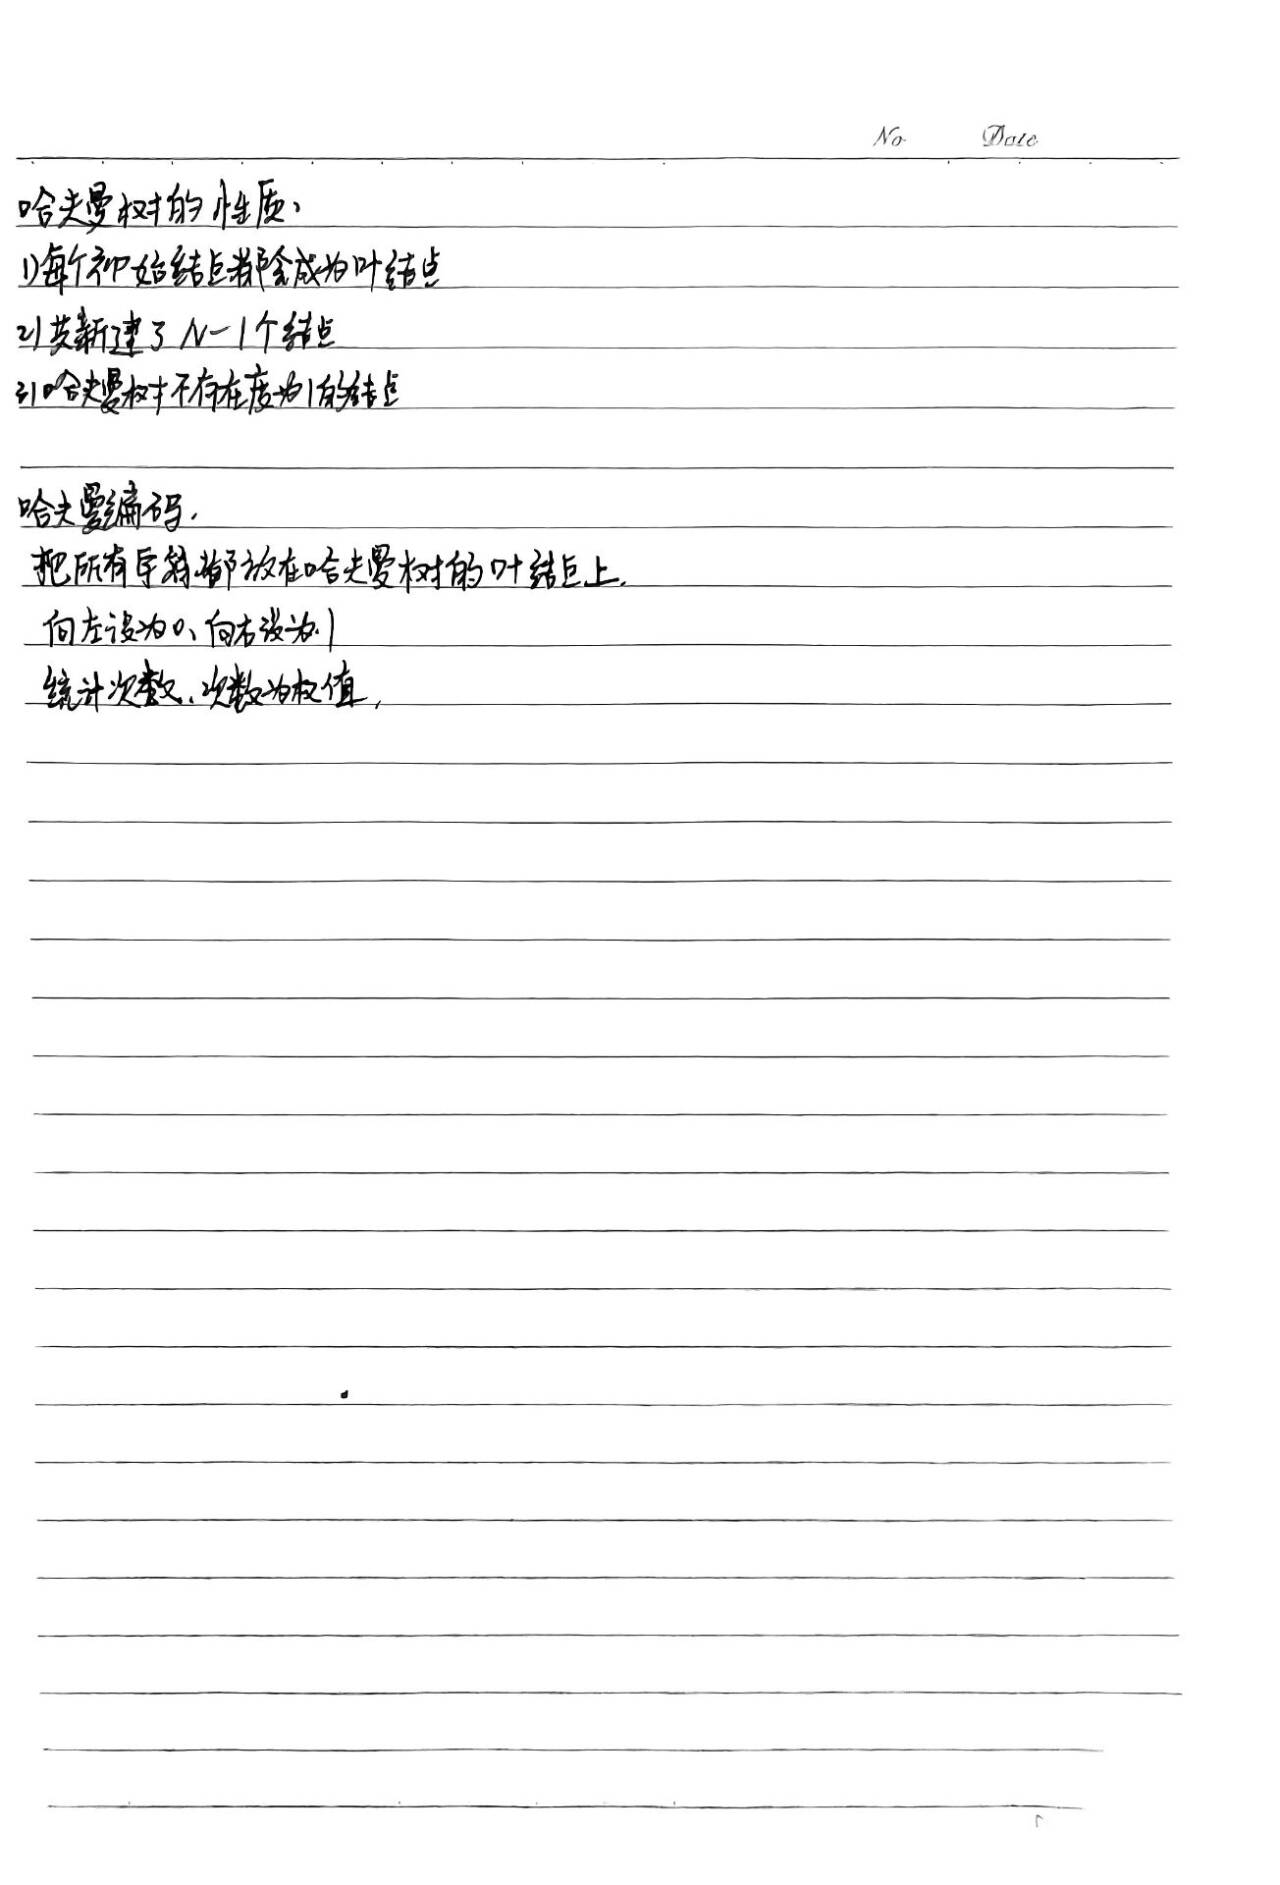 No Date
哈夫曼树的性质:
1)每个初始结点都会成为叶结点
2)共新建了N-1个结点
3)哈夫曼树不存在度为1的结点
哈夫曼编码.
把所有字符都放在哈夫曼树的叶结点上.
向左设为0、向右设为1
统计次数、次数为权值,